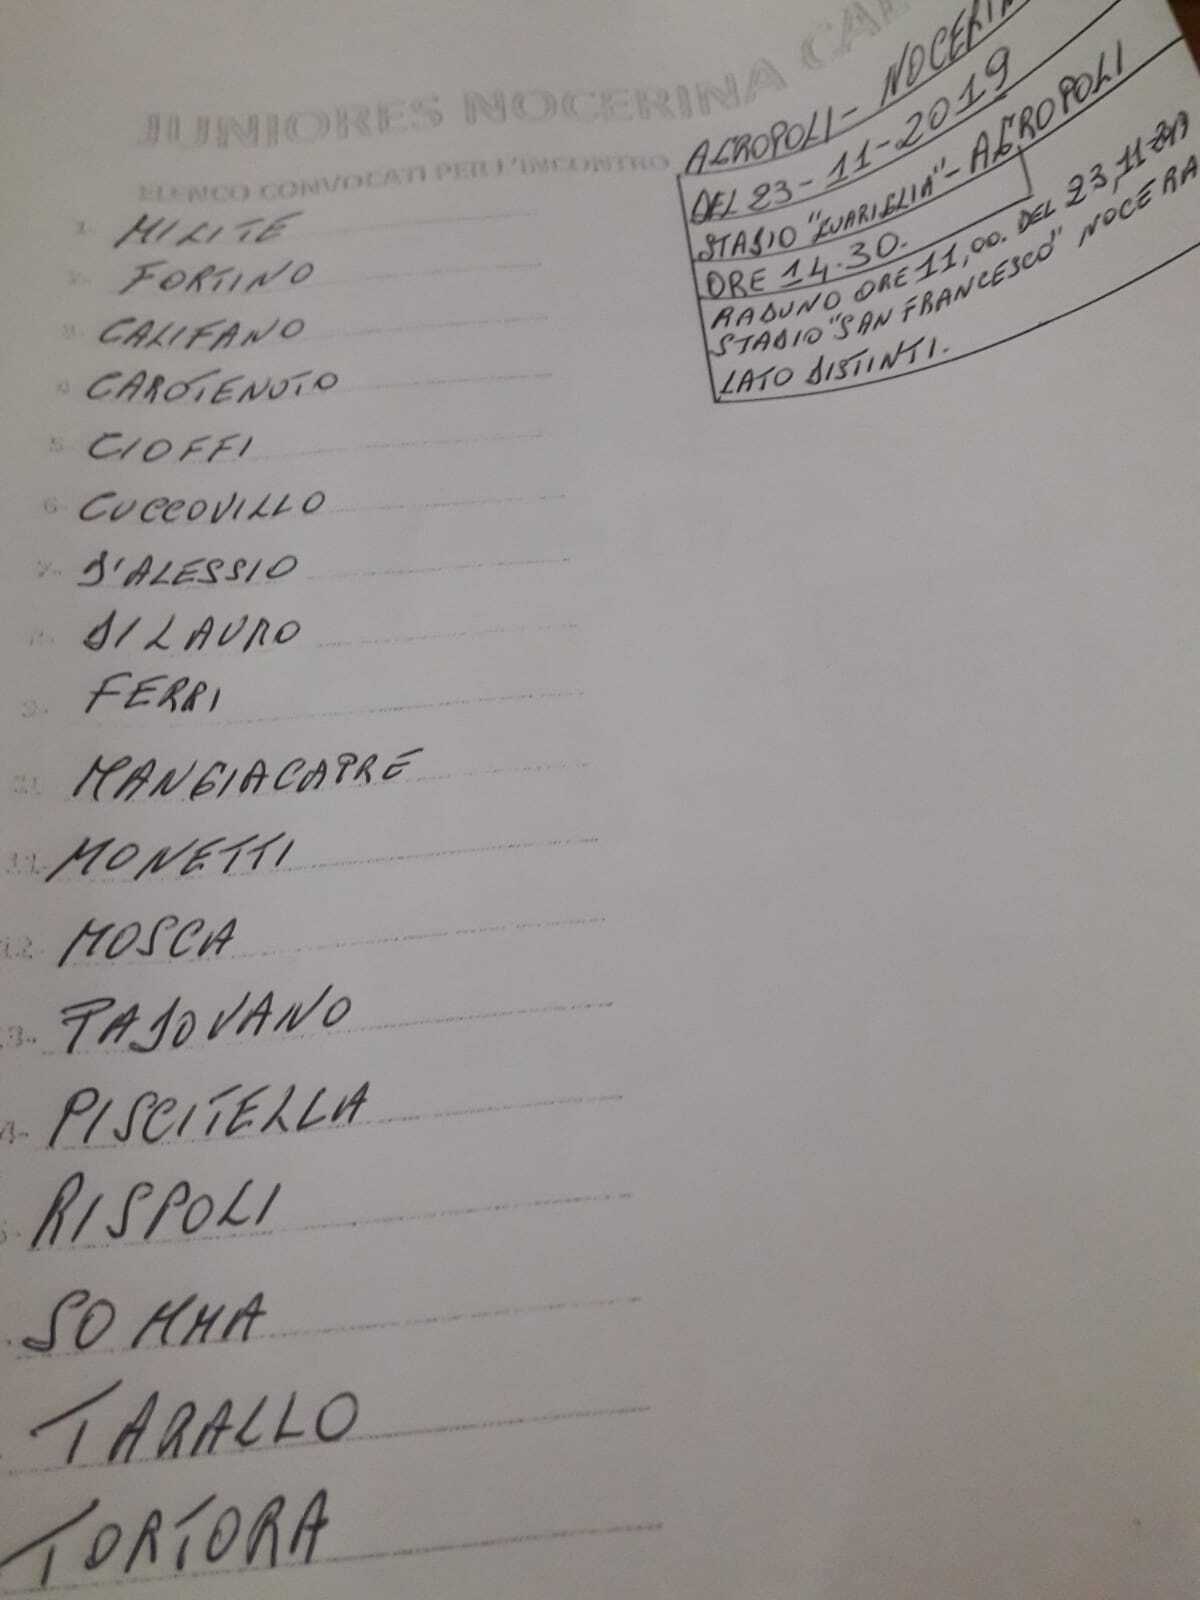 JUNIORES NOCERINA CAL
ELENCO CONVOCATI PER L'INCONTRO
AGROPOLI - NOCERIN
DEL 23-11-2019
STADIO "GUARIGLIA" - AGROPOLI
ORE 14.30.
RADUNO ORE 11,00. DEL 23,11
STADIO "SAN FRANCESCO" NOCERA
LATO DISTINTI.
1- MILITE
2- FORTINO
3- CALIFANO
4 CAROTENUTO
5- CIOFFI
6- CUCCOVILLO
7- D'ALESSIO
8- DI LAURO
9- FERRI
MANGIACAPRE
11- MONETTI
12- MOSCA
3- PADOVANO
4- PISCITELLA
RISPOLI
SOMMA
TARALLO
TORTORA